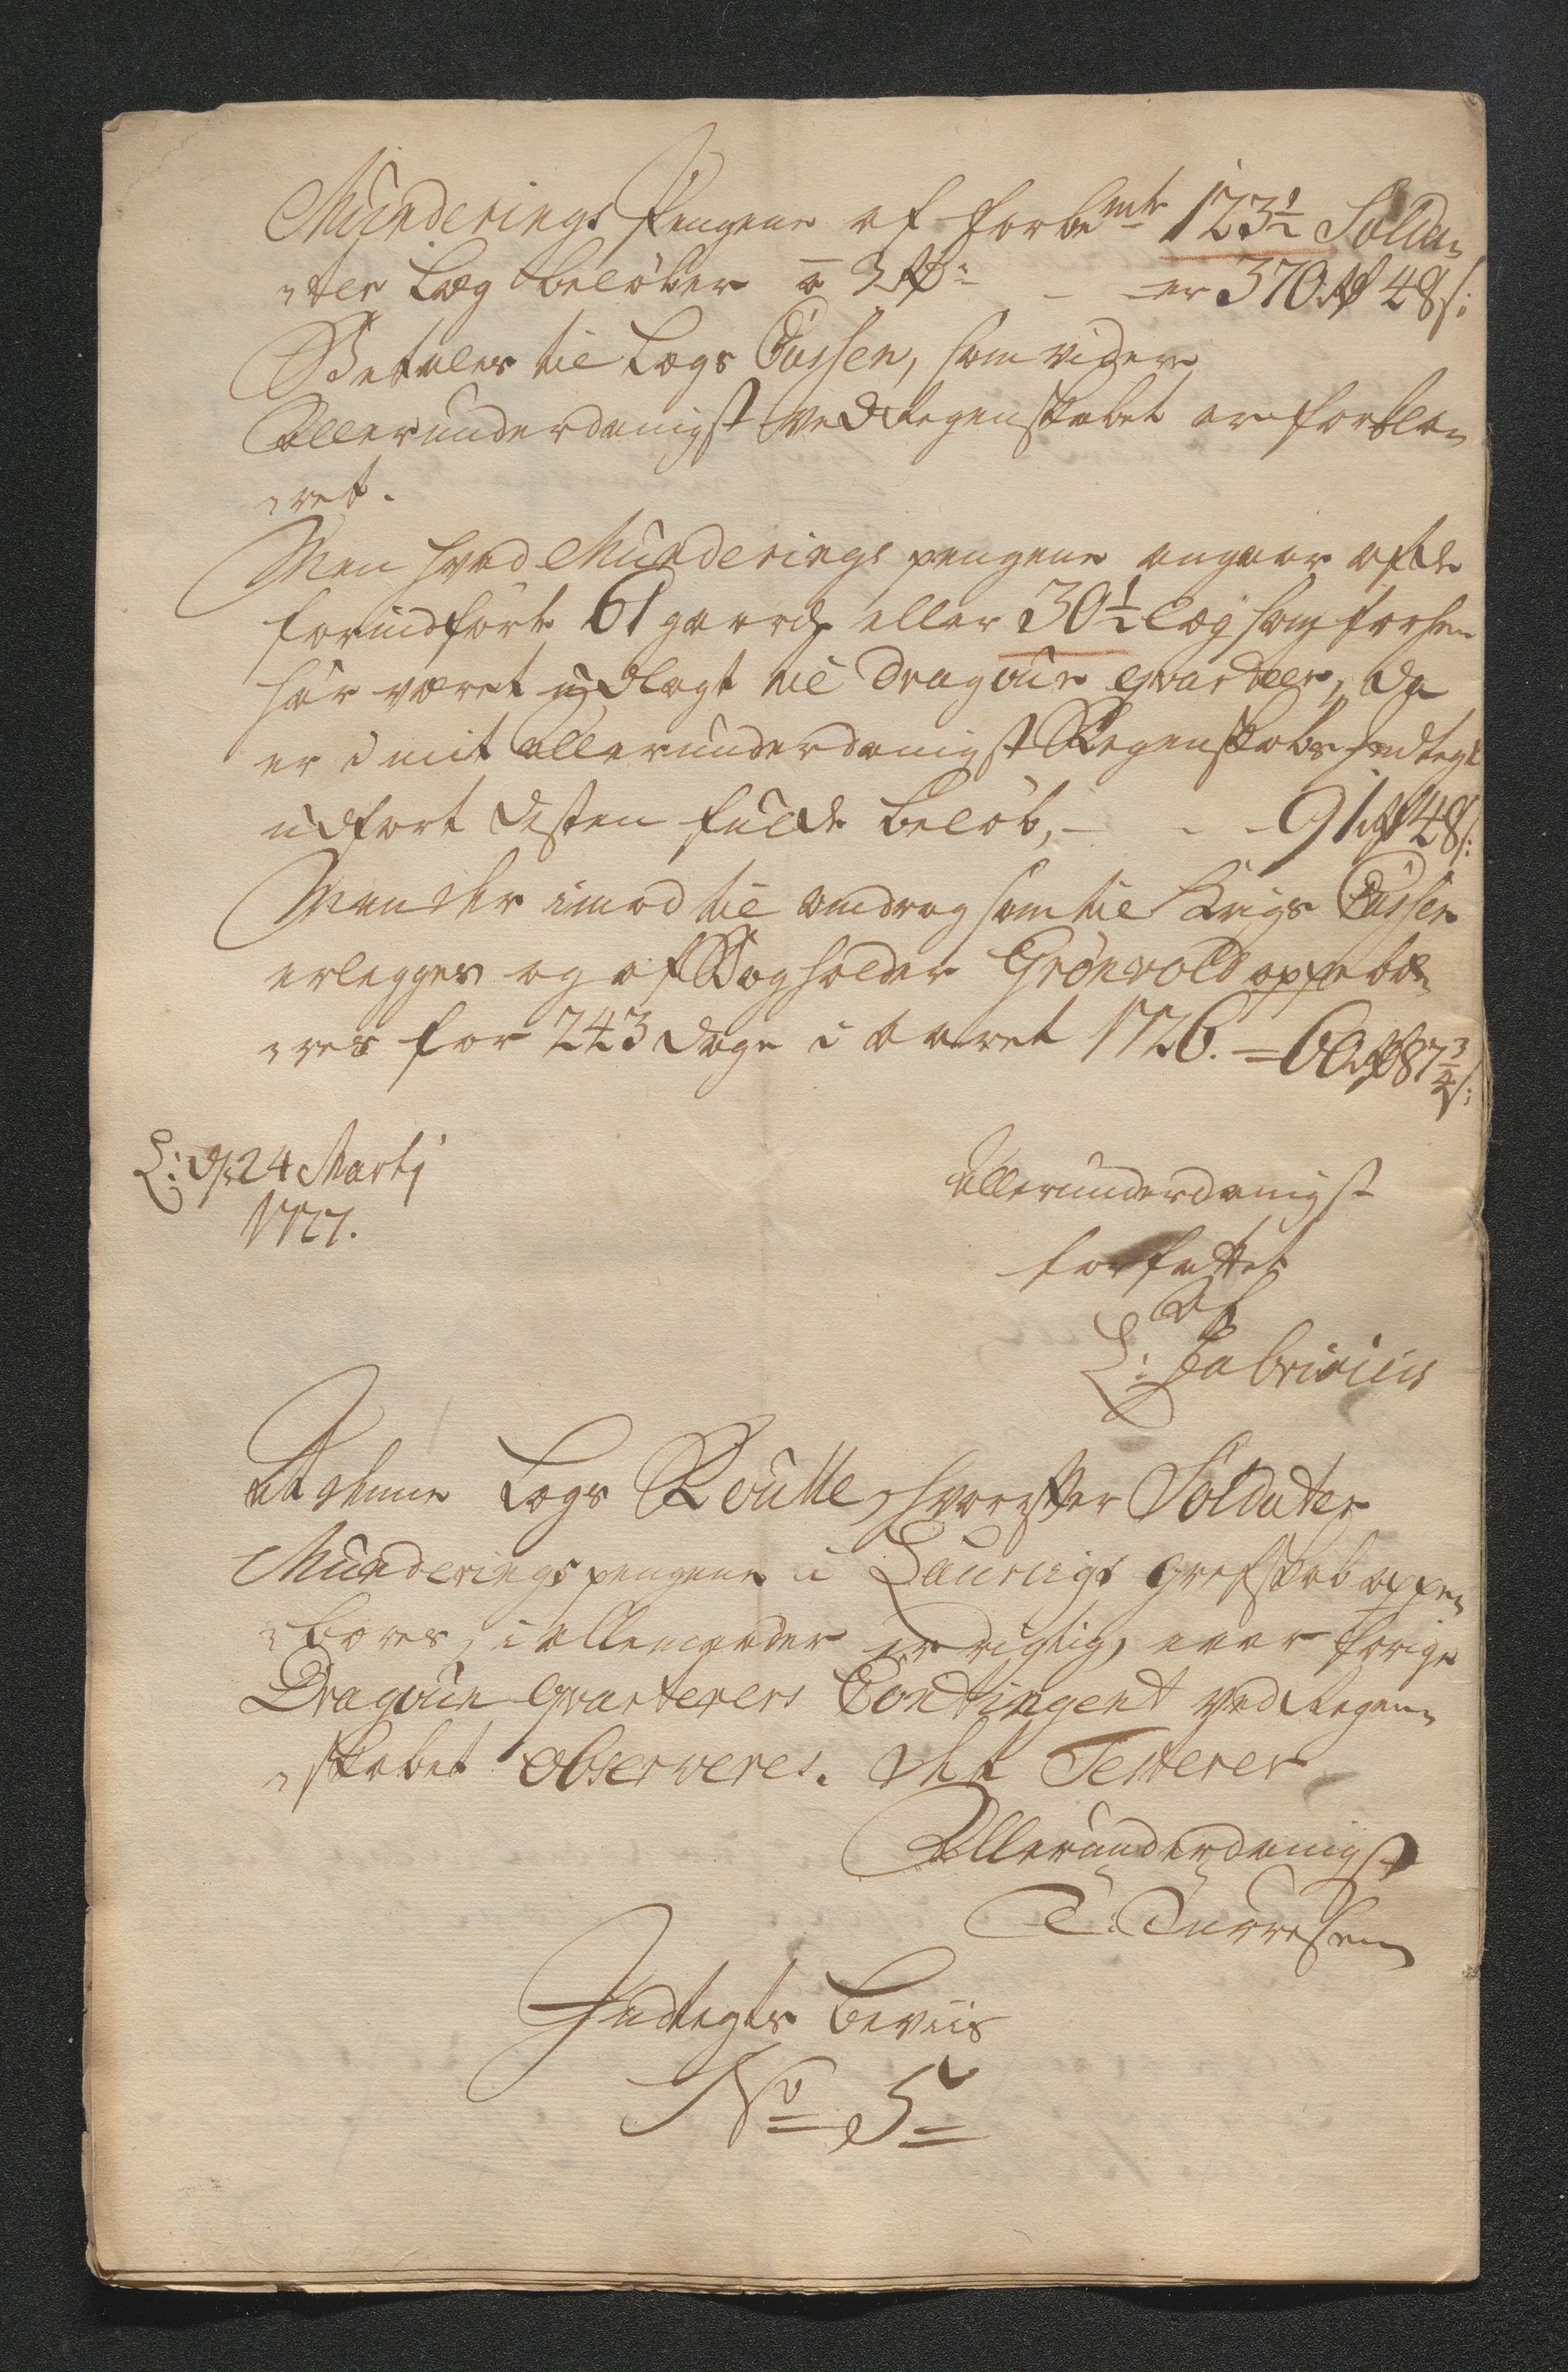 Munderings Pengene af forbemte 123½ Solda-
-ter Læg beløber a 3 Rd: - - er 370 Rd 48 s:
Betales til Lægs Cassen, som videre
Allerunderdanigst ved Regenskabet er forkla-
-ret.
Men hvad Munderings pengene angaar af de
forindførte 61 gaarde eller 30½ Læg som forhen
har været udlagt til Dragoun Qvarteer, da
er i mit allerunderdanigst Regenskabs Indtegt
udført desten fulde beløb, - - - 91 Rd 48 s:
Men der imod til amdrag som til Krigs Cassen
erlegges og af Bogholder Grönwold oppebæ-
-res for 243 dage i aaret 1726. = 60 Rd 87¾ s:
L: d: 24 Martj
1727.
Allerunderdanigst
forfattet
Af
L: Fabricius
At denne Lægs Roulle, hvorefter Soldater
Munderings pengene i Laurvigs Grefskab oppe-
-børes, i alle maader er rigtig, naar forige
Dragoun Qvarterers Contingent ved Regen-
-skabet observeres. Det Testerer
Allerunderdanigst
Indtegts Beviis
No 5